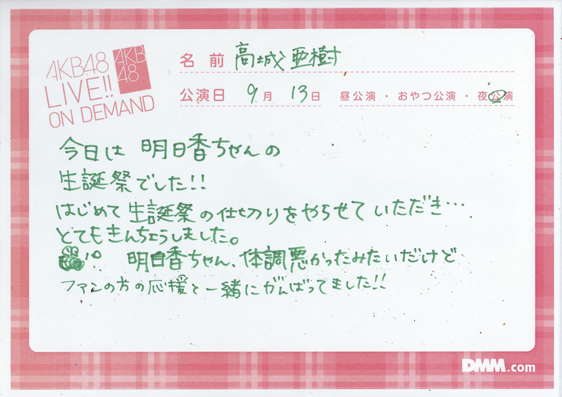 AKB48
LIVE!!
ON DEMAND
AKB
48
名前 高城亜樹
公演日 9月13日 昼公演・おやつ公演・夜公演
今日は 明日香ちゃんの
生誕祭でした!!
はじめて生誕祭の仕切りをやらせていただき…
とてもきんちょうしました。
明日香ちゃん、体調悪かったみたいだけど
ファンの方の応援と一緒にがんばってました!!
DMM.com